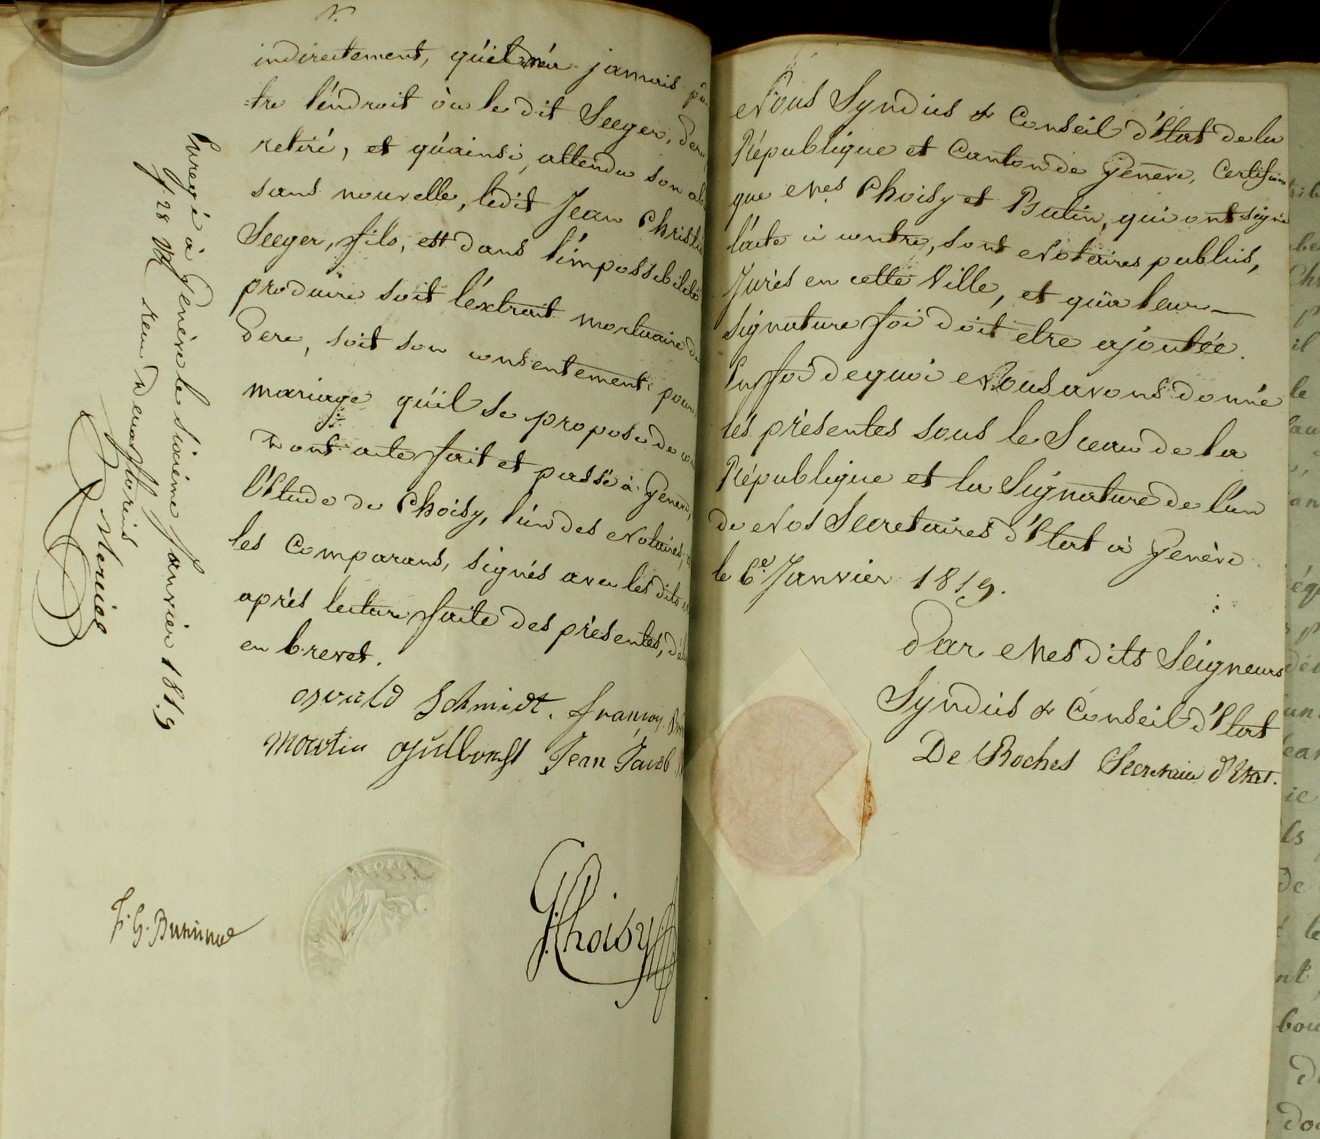 indirectement, qu'il n'a jamais
-tre l'endroit où le dit Seeger,
retiré, et qu'ainsi, attendu son
sans nouvelle, ledit Jean Christ
Seeger, fils, est dans l'impossibilité
produire soit l'extrait mortuaire de
Pere, soit son consentement pour
mariage qu'il se propose de
Dont acte fait et passé à Genève,
l'Etude de Choisy, l'un des Notaires,
les Comparans, signés avec les dits
après lecture faite des présentes,
en brevet.
oswald Schmidt. françois
Martin Jean Jacob
JChoisy
Enregé à Genève le sixième Janvier 1819
f 28 reçu deux florins
Nous Syndics & Conseil d'Etat de la
République et Canton de Genève, Certifions
que Mes Choisy et Butin, qui ont signé
l'acte ci contre, sont Notaires publics,
Jurés en cette Ville, et qu'à leur
signature foi doit etre ajoutée.
En foi de quoi Nous avons donné
les présentes sous le Sceau de la
République et la Signature de l'un
de Nos Secretaires d'Etat à Genève
le 6e Janvier 1819.
Par Mes dits Seigneurs
Syndics & Conseil d'Etat
De Roches Secretaire d'Etat.